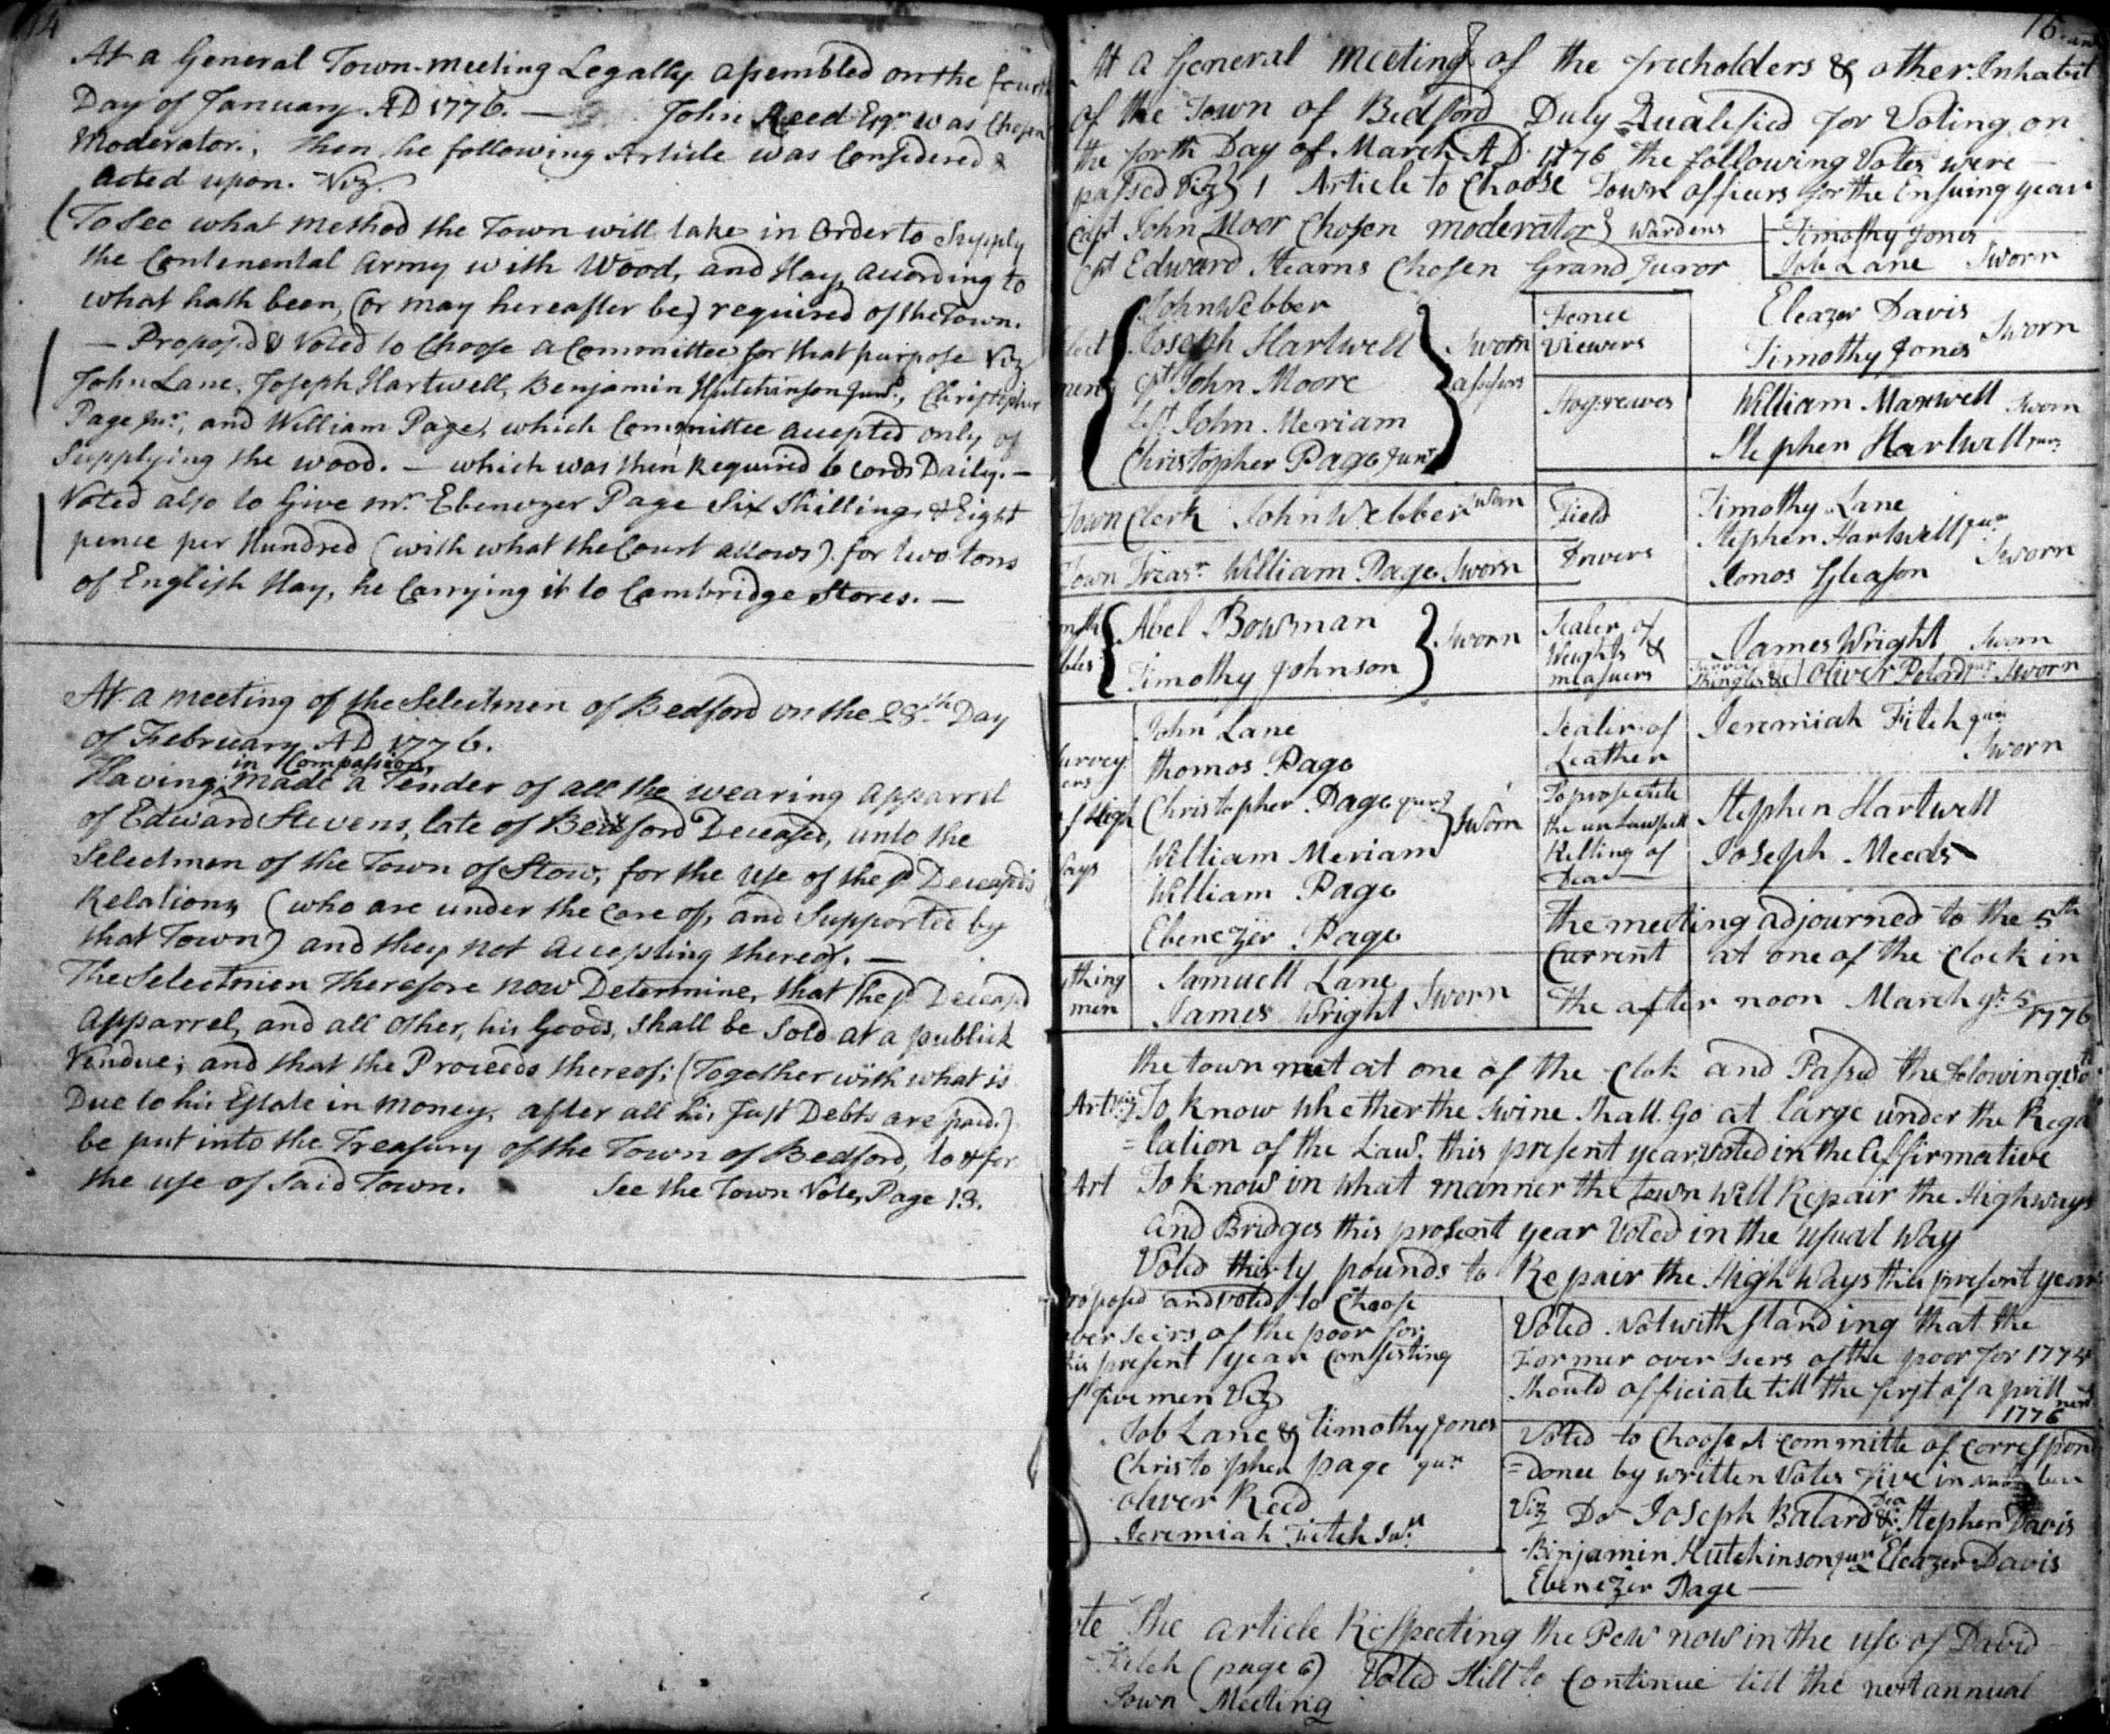 14
At a General Town-meeting Legally assembled on the fourth
Day of January AD 1776. — John Reed Esqr. was Chosen
Moderator., Then the following Article was Considered &
acted upon. Viz.
(To see what method the Town will take in order to Supply
the Contenental Army with Wood, and Hay, according to
what hath been, (or may hereafter be) required of the Town.
— Proposed & Voted to Choose a Committee for that purpose Viz
John Lane, Joseph Hartwell, Benjamin Hutchinson junr., Christopher
Page jnr., and William Page, which Committee accepted only of
Supplying the wood. — which was then Required 6 Cords Daily. —
Voted also to Give mr. Ebenezer Page Six Shillings & Eight
pence per Hundred (with what the Court allows) for two tons
of English Hay, he Carrying it to Cambridge Stores. —
At a meeting of the Selectmen of Bedford on the 28th Day
of February AD 1776.
in Compassion,
Having made a Tender of all the wearing apparrel
of Edward Stevens, late of Bedford Deceased, unto the
Selectmen of the Town of Stow, for the use of the sd Deceased's
Relations (who are under the Care of, and Supported by
that Town) and they not accepting thereof. —
The Selectmen Therefore now Determine, that the sd Deceased
Apparrel, and all other, his Goods, shall be Sold at a publick
Vendue; and that the Proceeds thereof; (Together with what is
Due to his Estate in money, after all his Just Debts are paid.)
be put into the Treasury of the Town of Bedford, to & for
the use of Said Town. See the Town Vote, Page 13.
15
At a General meeting of the freeholders & other Inhabit
ants
of the Town of Bedford Duly Qualified for Voting on
the forth Day of March AD 1776 the following Votes were
passed Viz 1 Article to Choose Town officers for the Ensuing year
Capt John Moor Chosen moderator
Wardens
Timothy Jones
Job Lane Sworn
Cpt Edward Stearns Chosen Grand Juror
lect
men
John Webber
Joseph Hartwell
Cpt John Moore
Lt John Meriam
Christopher Page junr
Sworn
assessors
Fence
Viewers
Eleazer Davis
Timothy Jones
Sworn
Hogreeves
William Maxwell Sworn
Stephen Hartwell junr
Town Clerk John Webber Sworn
Field
Drivers
Timothy Lane
Stephen Hartwell jur
Jonos Gleason
Sworn
Town Treasr. William Page Sworn
nsta
bles
Abel Bowman
Timothy Johnson
Sworn
Sealer of
Weights &
measuers
James Wright Sworn
Shingles &c Oliver Polard jur Sworn
urvey
ers
of High
ways
John Lane
thomos Page
Christopher Page jur
William Meriam
William Page
Ebenezer Page
Sworn
Sealer of
Leather
Jeremiah Fitch jur
Sworn
To prosecute
the unLawfull
Killing of
Dear
Stephen Hartwell
Joseph Meeds
ything
men
Samuell Lane
James Wright
Sworn
the meeting adjourned to the 5th
Current at one of the Clock in
the after noon March ye 5
1776
the town met at one of the Clok and Passed the folowing vots
Art viz To know whether the Swine Shall Go at large under the Regu
=lation of the Law, this present year, Voted in the Affirmative
Art To know in what manner the town Will Repair the Highways
and Bridges this present year Voted in the usual way
Voted thirty pounds to Repair the High ways this present year
Proposed and voted to Choose
over seers of the poor for
this present year Consisting
of five men Viz
Job Lane & Timothy Jones
Christo pher page jur
oliver Reed
Jeremiah Fitch Jur.
Voted Notwith standing that the
Former over seers of the poor for 1775
should officiate till the first of aprill next
1776
Voted to Choose A Committe of Correspon
=dence by written Votes five in number
Viz Dor Joseph Balard & Dea Stephen Davis
Binjamin Hutchinson jur Eleazer Davis
Ebenezer Page —
ote The article Respecting the Pew now in the use of David
Fitch (page 6) Voted Still to Continue till the next annual
Town Meeting